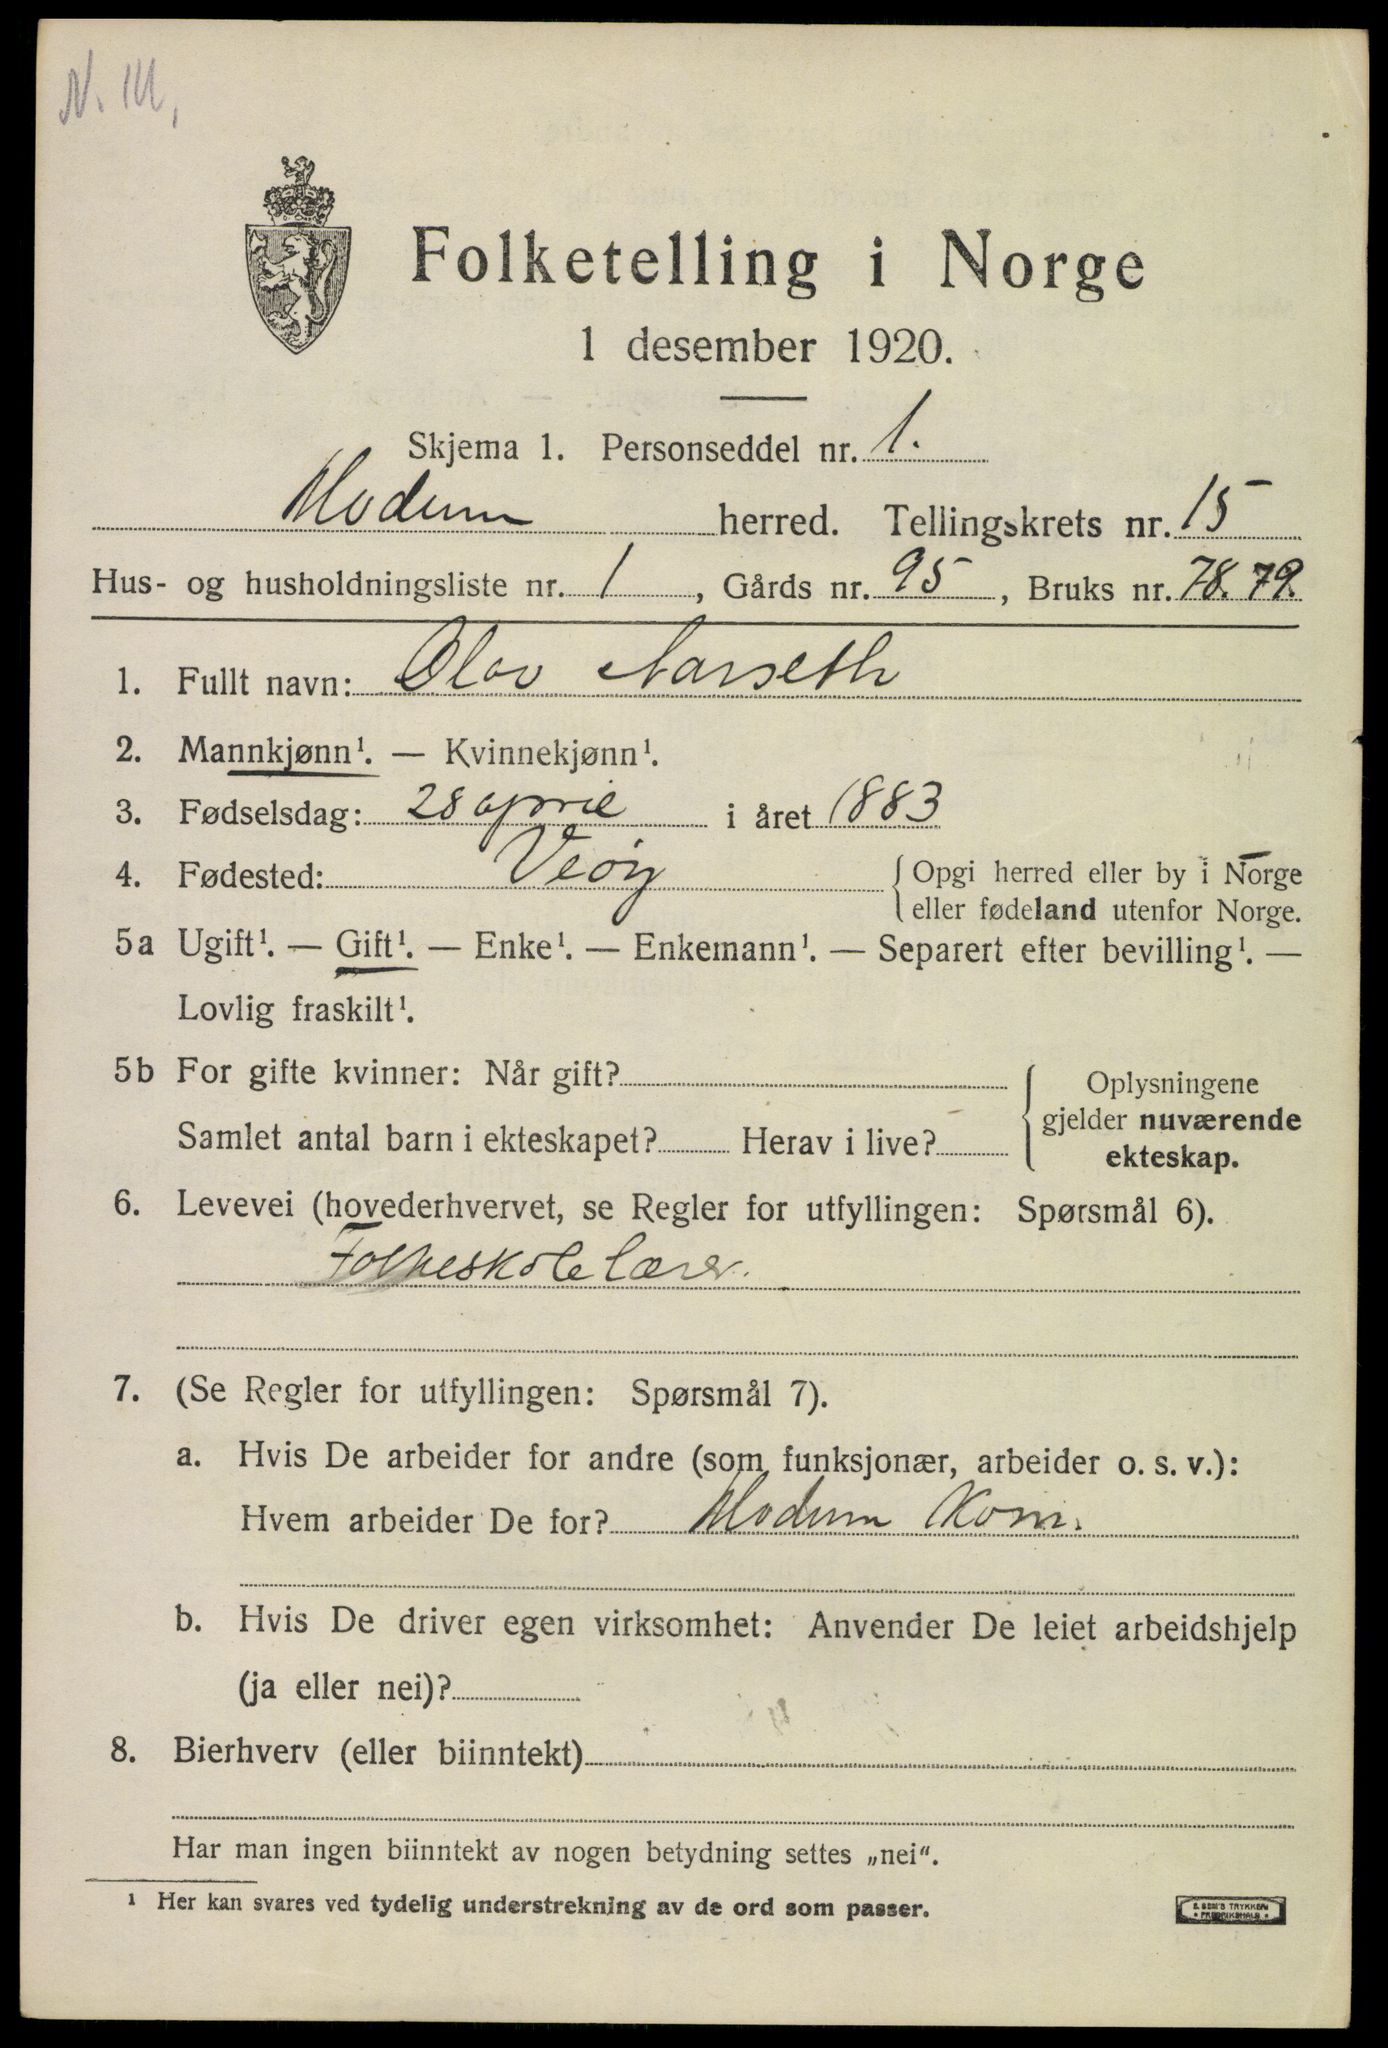 N. III,
Folketelling i Norge
1 desember 1920.
Skjema 1. Personseddel nr. 1.
Modum herred. Tellingskrets nr. 15
Hus- og husholdningsliste nr. 1, Gårds nr. 95, Bruks nr. 78. 79.
1. Fullt navn: Olav Aarseth
2. Mannkjønn¹. — Kvinnekjønn¹.
3. Fødselsdag: 28 april i året 1883
4. Fødested: Veöy { Opgi herred eller by i Norge
eller fødeland utenfor Norge.
5a Ugift¹. — Gift¹. — Enke¹. — Enkemann¹. — Separert efter bevilling¹. —
Lovlig fraskilt¹.
5b For gifte kvinner: Når gift? { Oplysningene
gjelder nuværende
Samlet antal barn i ekteskapet? Herav i live?
ekteskap.
6. Levevei (hovederhvervet, se Regler for utfyllingen: Spørsmål 6).
Folkeskolelærer.
7. (Se Regler for utfyllingen: Spørsmål 7).
a. Hvis De arbeider for andre (som funksjonær, arbeider o. s. v.):
Hvem arbeider De for? Modum Kom.
b. Hvis De driver egen virksomhet: Anvender De leiet arbeidshjelp
(ja eller nei)?
8. Bierhverv (eller biinntekt)
Har man ingen biinntekt av nogen betydning settes „nei“.
¹ Her kan svares ved tydelig understrekning av de ord som passer.
E. SEM'S TRYKKERI
• FREDRIKSHALD •